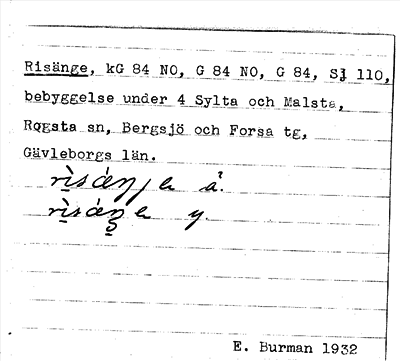 Risänge, kG 84 NO, G 84 NO, G 84, Sj 110,
bebyggelse under 4 Sylta och Malsta,
Rogsta sn, Bergsjö och Forsa tg,
Gävleborgs län.
å.
y.
E. Burman 1932